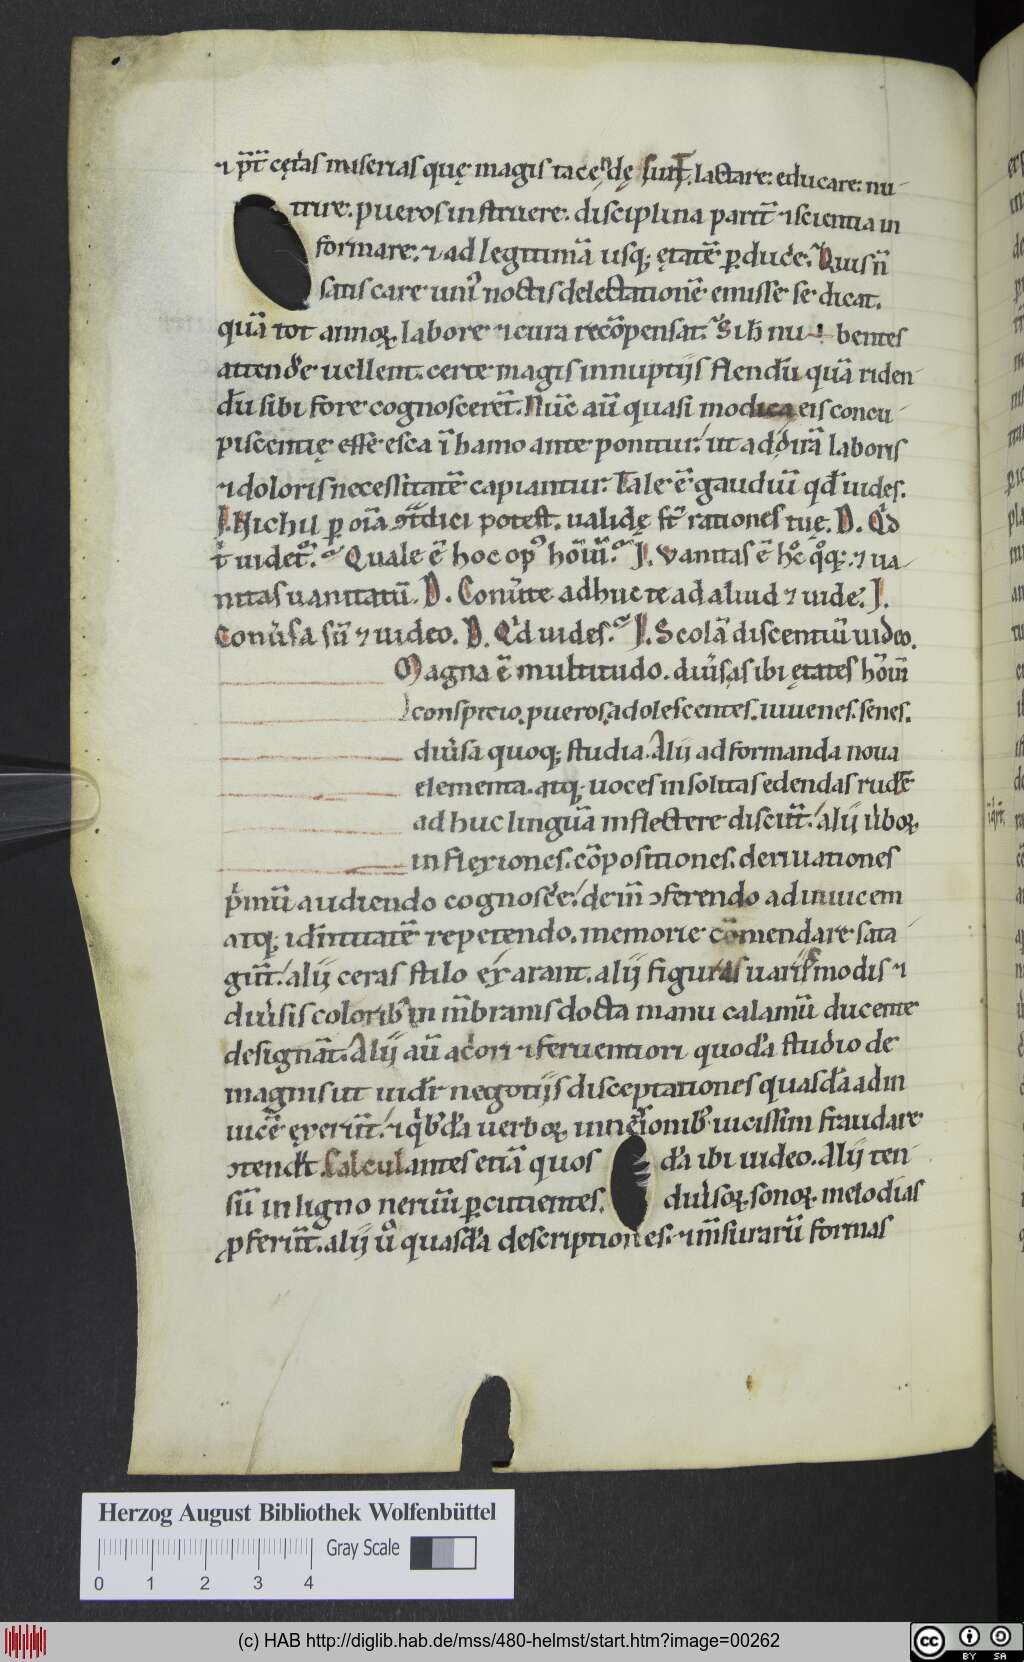 ⁊ p̄t̄ cęt̾as miserias quę magis tacęⁿdę sunt. lactare: educare: nu-
trire: pueros instruere. disciplina parit̄ ⁊ scientia in
formare: ⁊ ad legitimā usq; ętatē ꝑduc̾e. Quis n̄
satis care uniꝰ noctis delectationē emisse se dicat.
quā tot annoꝝ labore ⁊ cura recōpensat. Sib̾ nu- bentes
attend̾e uellent. certe magis in nuptijs flend̄u quā riden-
d̄u sibi fore cognoscer̄et. Nūc aū quasi modica eis concu-
piscentię esse esca ī hamo ante ponitur. ut ad dirā laboris
⁊ doloris necessitatē capiantur. Tale ē gaudiū qd̄ uides.
I. Nichil ꝑ oīa ↄt̄dici potest. ualidę st̄ rationes tuę. D. Qͥd
t̾ uidet̾. Quale ē hoc opꝰ hōiūm. I. Vanitas ē hͦc qͦꝗ; ⁊ ua-
nitas uanitatū. D. Conu̾te adhuc te ad aliud ⁊ uide. I.
Conu̾sa sū ⁊ uideo. D. Qͥd uides. I. Scolā discentiū uideo.
Magna ē multitudo. diu̾sas ibi ętates hōim̄
conspicio. pueros. adolescentes. iuuenes. senes.
diu̾sa quoq; studia. Alij ad formanda noua
elementa. atq; uoces insolitas edendas rudē
adhuc linguā inflectere discūt. alij u̾boꝝ
inflexiones. cōpositiones. deriuationes
pͥmū audiendo cognosc̾e. dein̄ ↄferendo adinuicem
atq; id̄intitatē repetendo. memorie cōmendare sata-
gūt. alij ceras stilo exarant. alij figuras uarijs modis ⁊
diu̾sis coloribꝰ in m̄branis docta manu calamū ducente
designāt. Alij aū ac̾ori ⁊ feruentiori quod̄a studio de
magnis ut uid̄r negotijs disceptationes quasd̄a adin
uicē exerūt. ⁊ qͥbꝰd̄a uerboꝝ innexionibꝰ uicissim fraudare
ↄtend̄t. Calculantes etiā quos d̄a ibi uideo. Alij ten-
sū in ligno neruū ꝑcutientes. diu̾soꝝ sonoꝝ melodias
ꝓferūt. alij uͦ quasd̄a descriptiones. ⁊ m̄surarū formas
Herzog August Bibliothek Wolfenbüttel
Gray Scale
0 1 2 3 4
(c) HAB http://diglib.hab.de/mss/480-helmst/start.htm?image=00262
cc BY SA